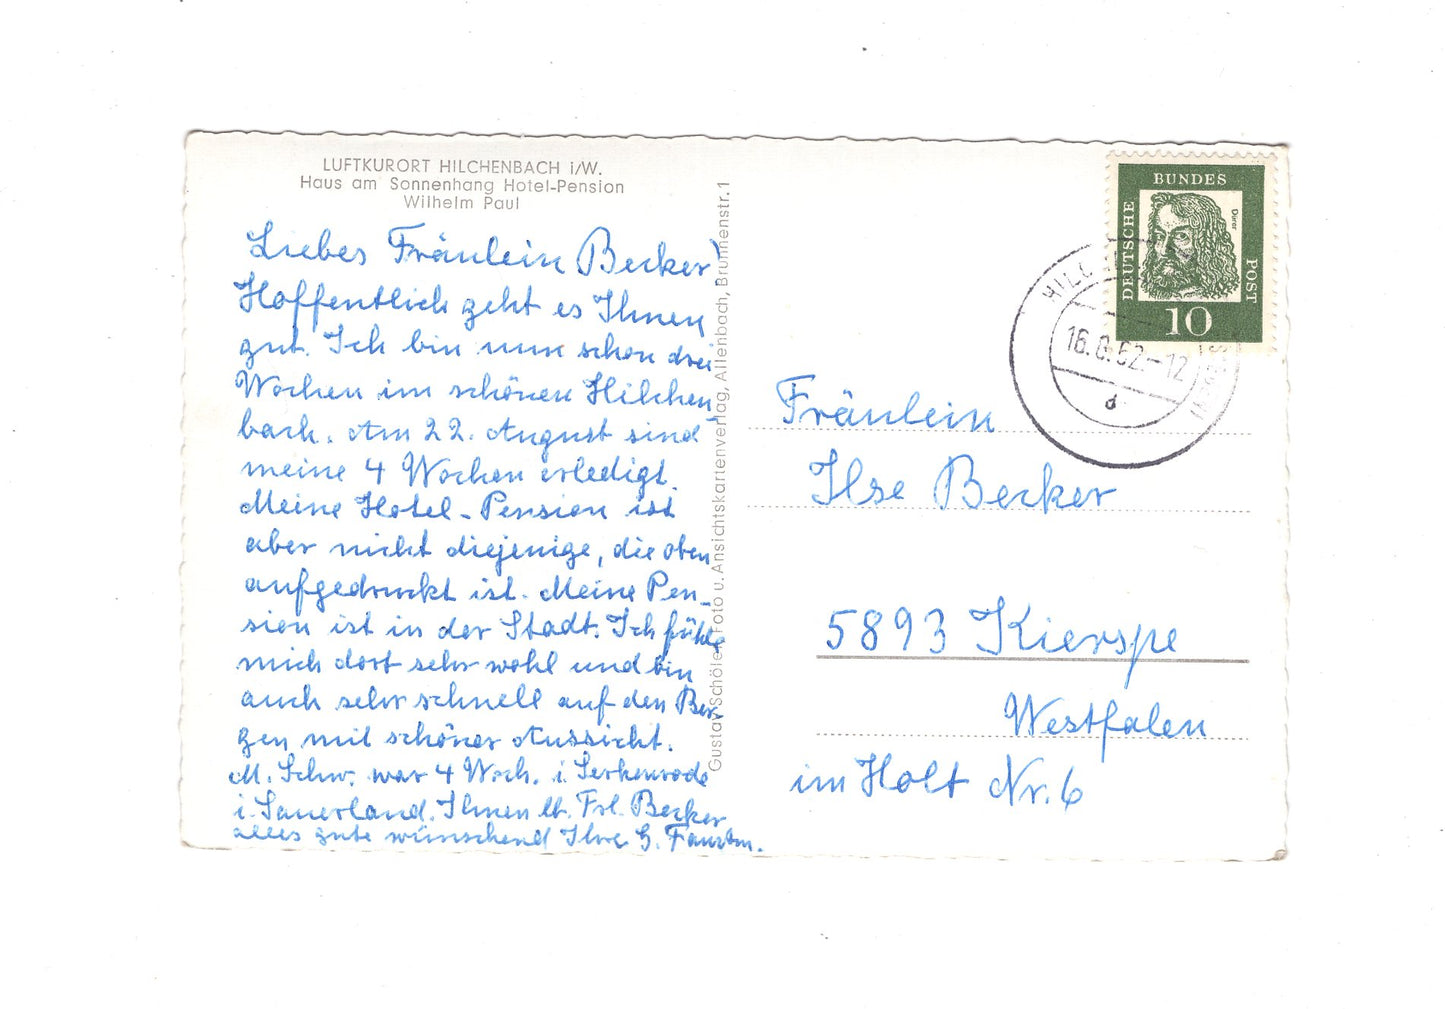 LUFTKURORT HILCHENBACH i/W.
Haus am Sonnenhang Hotel-Pension
Wilhelm Paul
Liebes Fräulein Becker!
Hoffentlich geht es Ihnen
gut. Ich bin nun schon drei
Wochen im schönen Hilchen-
bach. Am 22. August sind
meine 4 Wochen erledigt.
Meine Hotel-Pension ist
aber nicht diejenige, die oben
aufgedruckt ist. Meine Pen-
sion ist in der Stadt. Ich fühle
mich dort sehr wohl und bin
auch sehr schnell auf den Ber-
gen mit schöner Aussicht.
M. Schw. war 4 Woch. i. Serkenrode
i. Sauerland. Ihnen lb. Frl. Becker
alles gute wünschend Ihre G.
Gustav Schöler, Foto u. Ansichtskartenverlag, Allenbach, Brunnenstr. 1
DEUTSCHE
BUNDES
POST
Dürer
10
HILC
16.8.62.-12
d
Fräulein
Ilse Becker
5893 Kierspe
Westfalen
im Holt Nr. 6